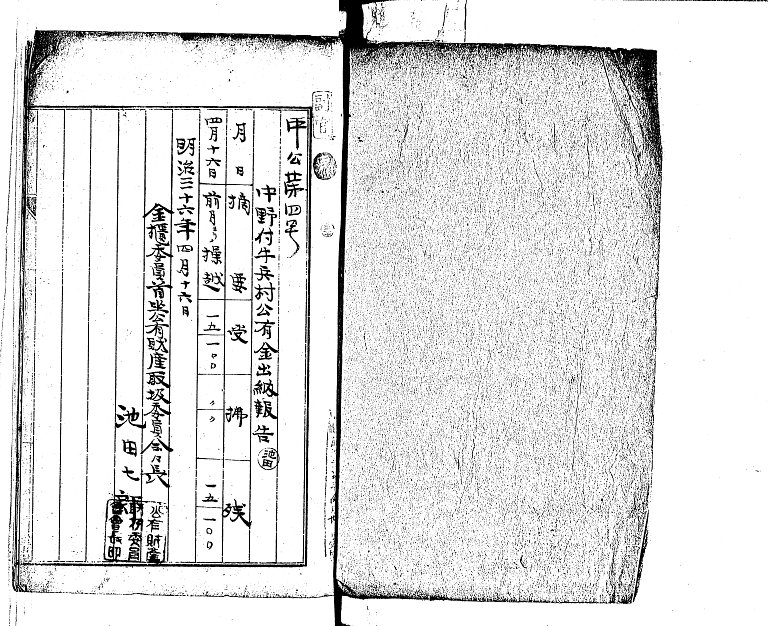 甲公第四号
中野付牛兵村公有金出納報告
池田
月日 摘要 受 拂 残
四月十六日 前月ヨリ操越 一五一〇〇 〃〃 一五一〇〇
明治三十六年四月十六日
金櫃委員首坐公有財産取扱委員会々長
池田七
公有財産
取扱委員
会長印